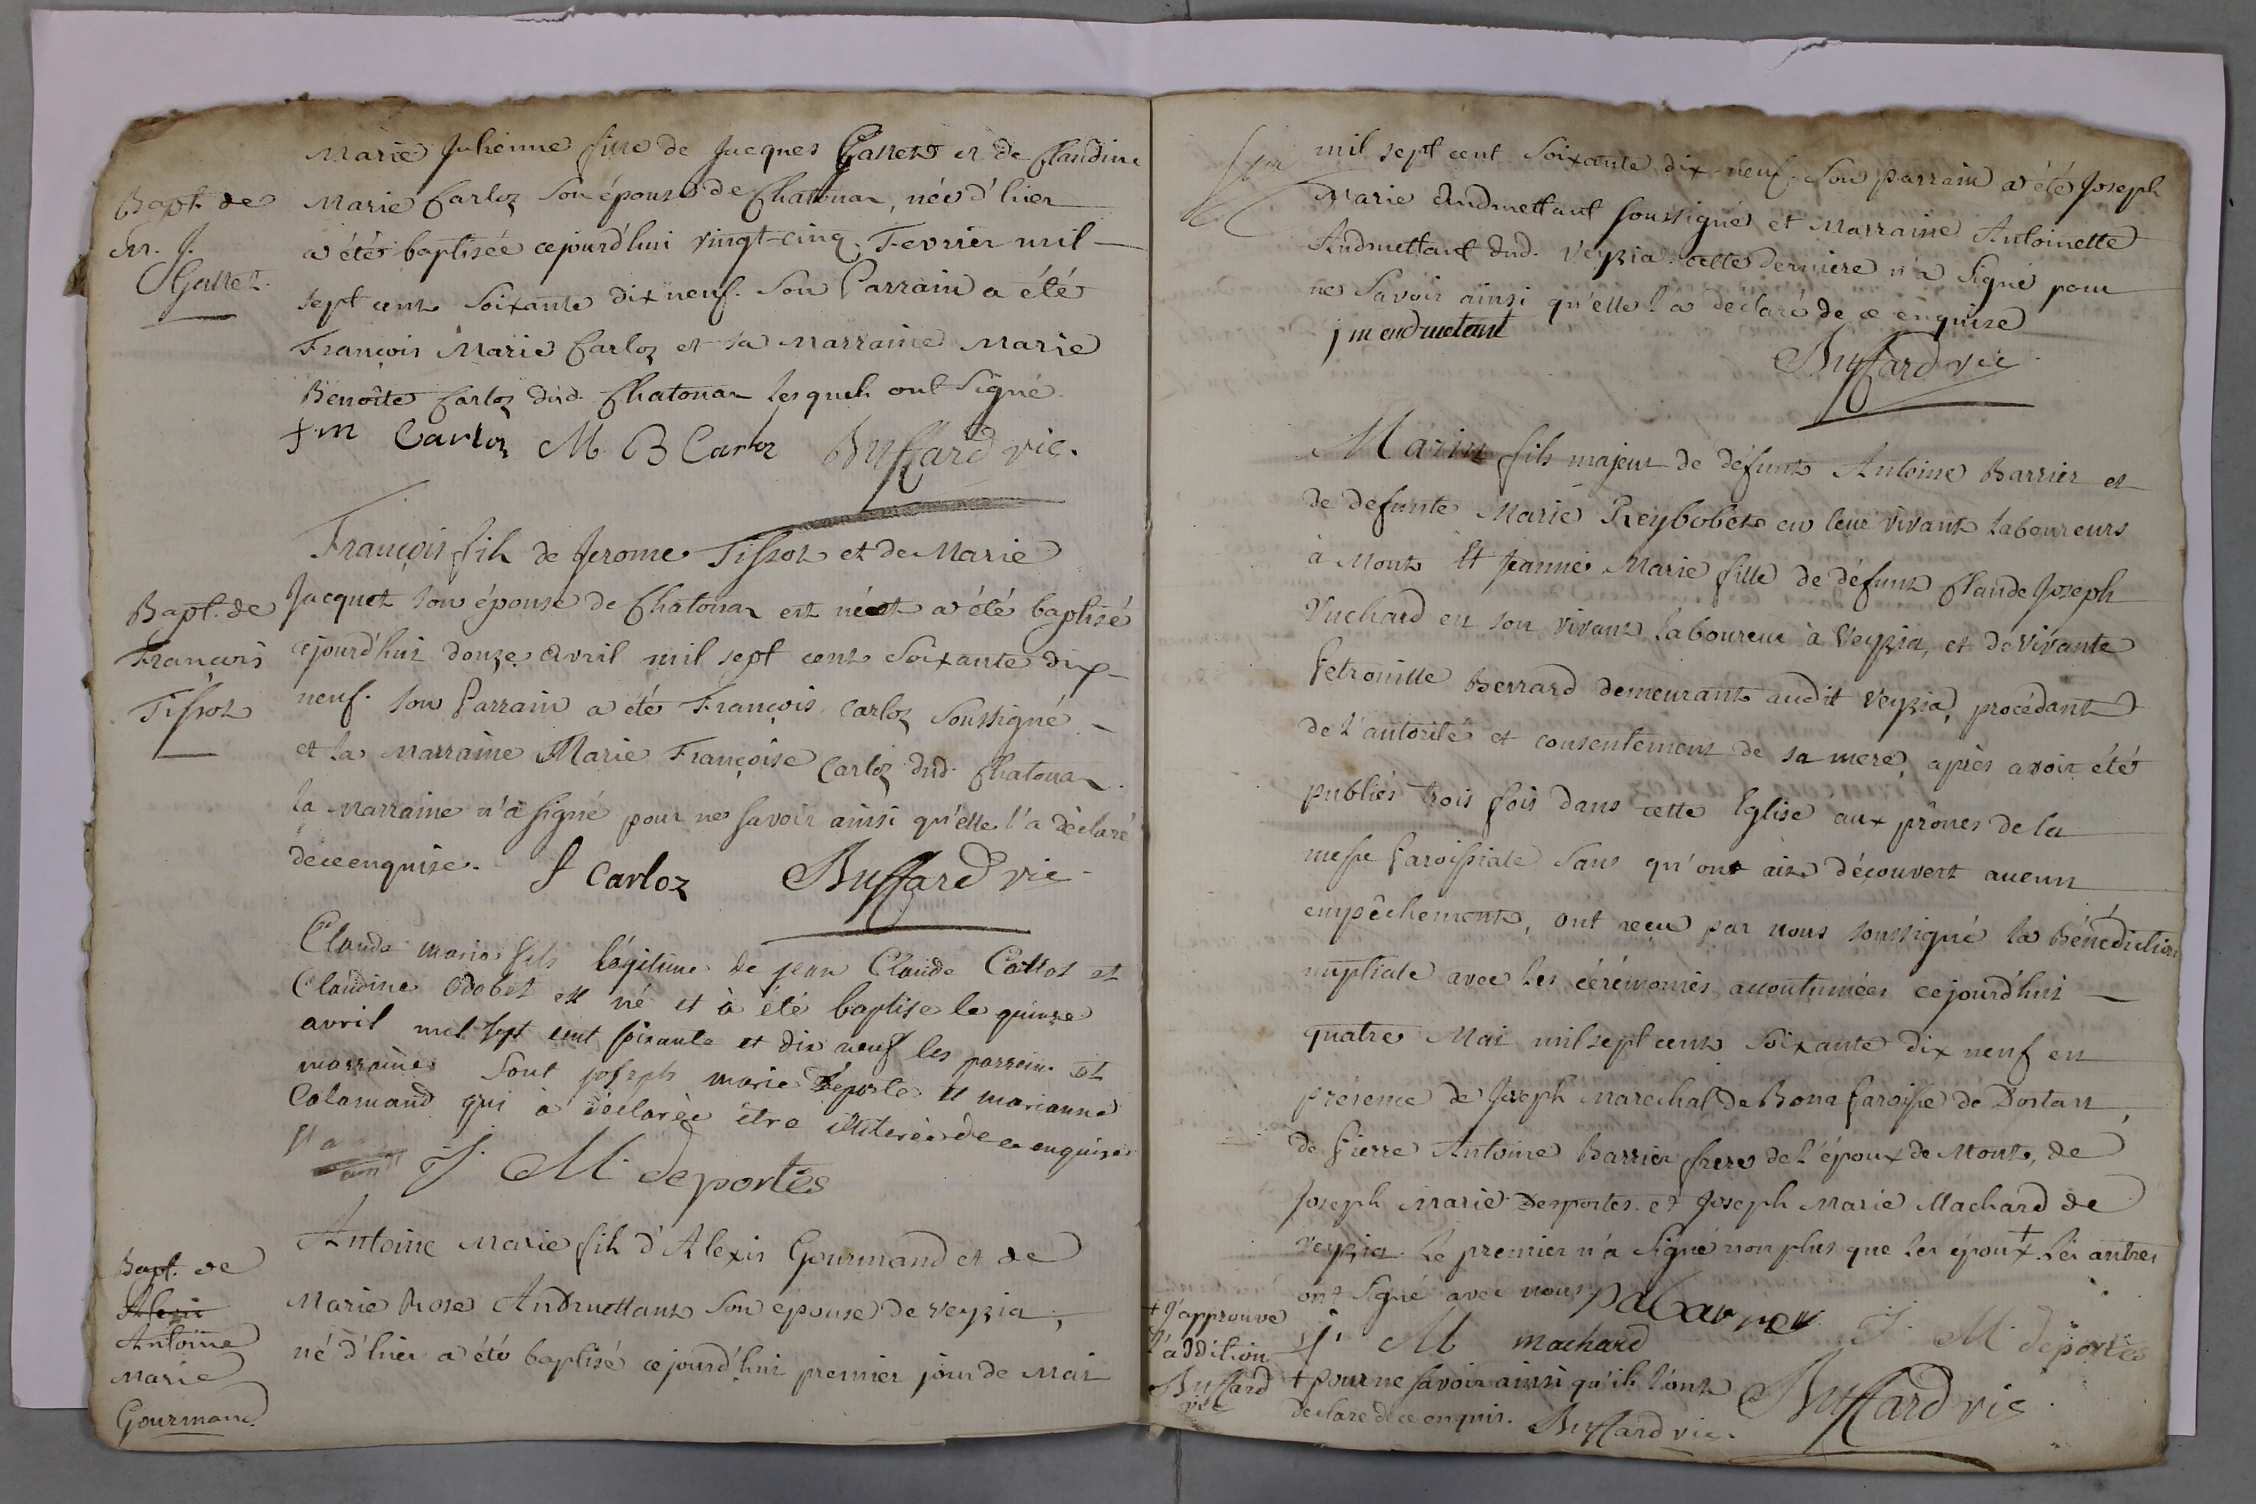 Marie Julienne fille de Jacques Gallet et de Claudine
Bapt. de
M. J.
Gallet.
Marie Carloz son épouse de Chatonax, née d'hier
a été baptisée cejourd'hui vingt-cinq Fevrier mil
sept cent soixante dix neuf. Son Parrain a été
François Marie Carloz et sa Marraine Marie
Benoîte Carloz dud. Chatonax lesquels ont signé
f. m Carloz M B Carloz Buffard vic.
François fils de Jerome Tissot et de Marie
Bapt. de
François
Tissot
Jacquet son épouse de Chatonax est né et a été baptisé
cejourd'hui douze avril mil sept cent soixante dix
neuf. son Parrain a été François Carloz soussigné
et la Marraine Marie Françoise Carloz dud. Chatonax.
la Marraine n'a signé pour ne savoir ainsi qu'elle l'a déclaré
de ce enquise. f Carloz Buffard vic.
Claude marie fils légitime de jean Claude Collot et
Claudine Odobet est né et à été baptise le quinze
avril mil sept cent soisante et dix neuf les parrein et
marraine sont joseph marie Deporte et marianne
Calamand qui à déclarée être illiterée de ce enquise
J. M. deportes
Bapt. de
Alexis
Antoine
Marie
Gourmand.
Antoine Marie fils d'Alexis Gourmand et de
Marie Rose Andruettant son épouse de Veyzia,
né d'hier a été baptisé cejourd'hui premier jour de Mai
mil sept cent soixante dix-neuf. Son parrain a été Joseph
Marie Andruettant soussigné et Marraine Antoinette
Andruettant dud. Veyzia. cette derniere n'a signé pour
ne savoir ainsi qu'elle l'a déclaré de ce enquise
j m andruetant
Buffard vic.
Marin fils majeur de défunt Antoine Barrier et
de defunte Marie Reybobet en leur vivant laboureurs
à Mons Et Jeanne Marie fille de défunt Claude Joseph
Vuchard en son vivant laboureur à Veyzia, et de vivante
Petronille Berrard demeurant audit Veyzia, procédant
de l'autorité et consentement de sa mere, après avoir été
publiés trois fois dans cette Eglise aux prônes de la
messe Paroissiale sans qu'ont ait découvert aucun
empêchement, ont reçu par nous soussigné la Bénédiction
nuptiale avec les cérémonies accoutumées cejourd'hui
quatre Mai mil sept cent soixante dix neuf en
présence de Joseph Marechal de Bona Paroisse de Dortan,
de Pierre Antoine Barrier frere de l'époux de Mons, de
Joseph Marie Desportes et Joseph Marie Machard de
Veyzia. Le premier n'a signé non plus que les époux + les autres
ont signé avec nous.
J. M. deportes
j. M machard
+ J'approuve
l'addition
Buffard
vic
+ pour ne savoir ainsi qu'ils l'ont
declare de ce enquis. Buffard vic.
Buffard vic.